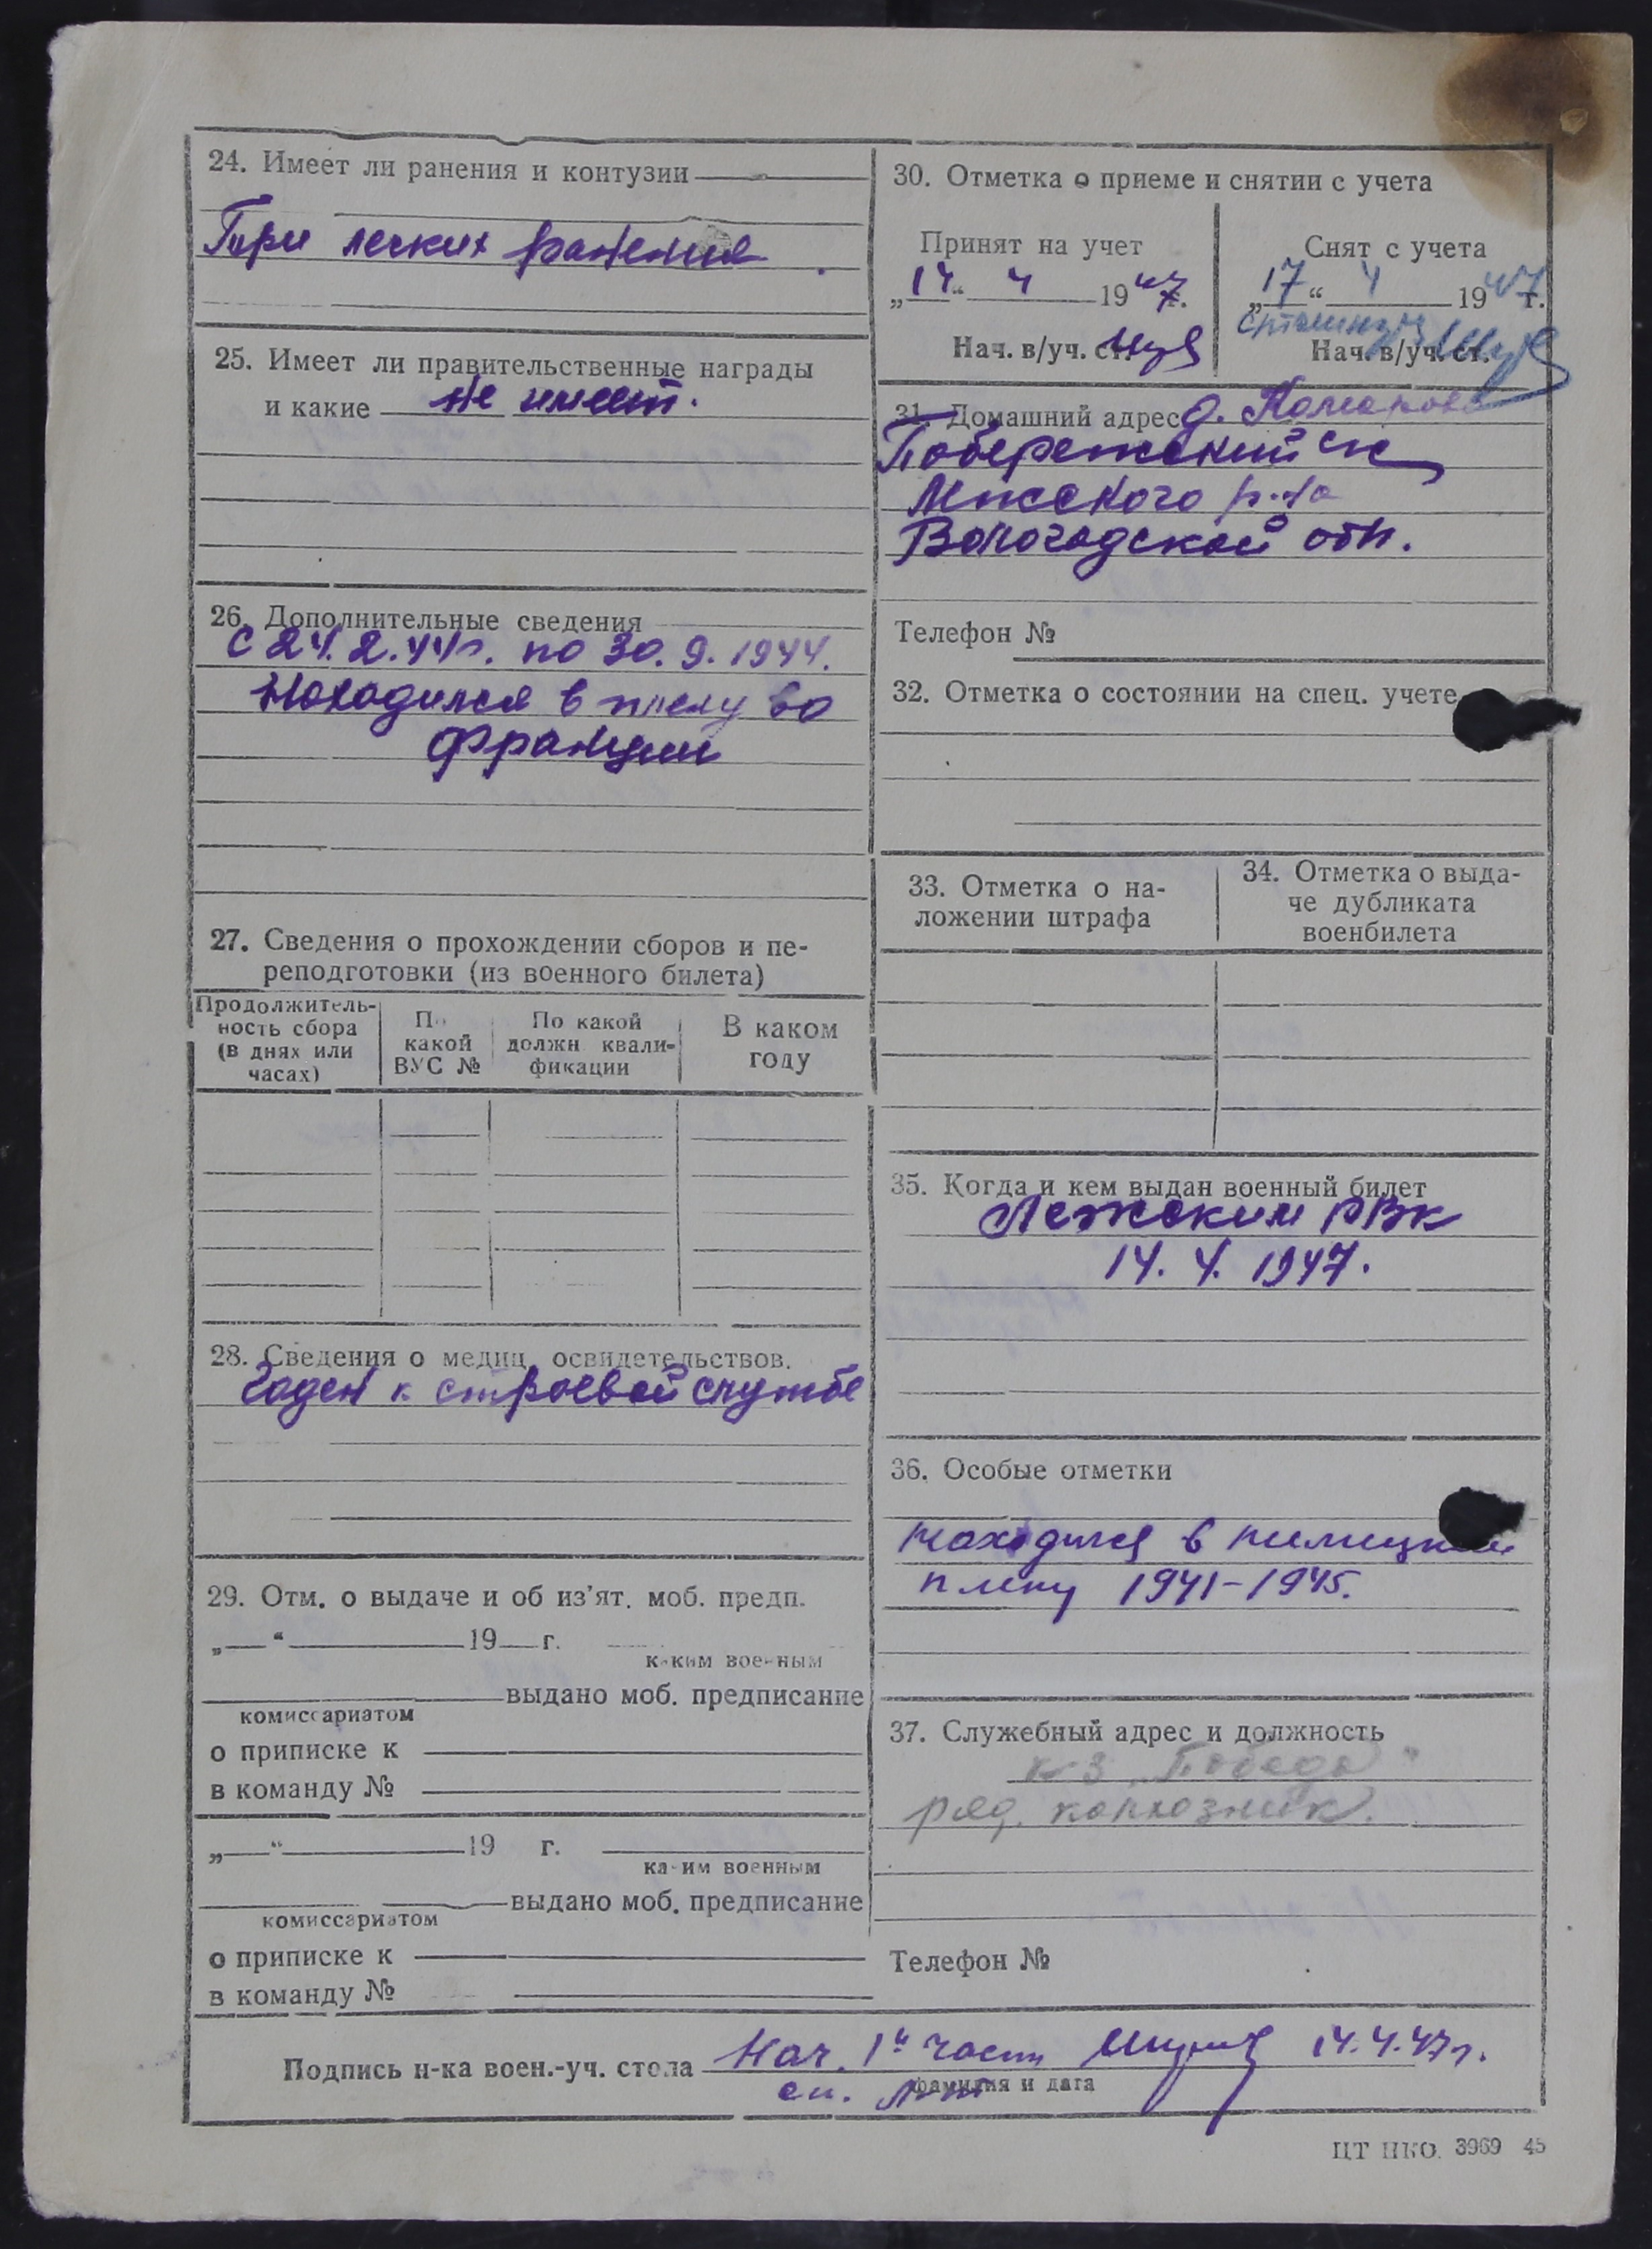 24. Имеет ли ранения и контузии
Три легких ранения.
25. Имеет ли правительственные награды
и какие не имеет.
26. Дополнительные сведения
с 24.2.44г. по 30.9.1944.
Находился в плену во
Франции
27. Сведения о прохождении сборов и пе-
реподготовки (из военного билета)
Продолжитель-
ность сбора
(в днях или
часах)
По
какой
ВУС №
По какой
должн квали-
фикации
В каком
году
28. Сведения о медиц. освидетельствов.
Годен к строевой службе
29. Отм. о выдаче и об из'ят. моб. предп.
„ “ 19 г.
каким военным
выдано моб. предписание
комиссариатом
о приписке к
в команду №
„ “ 19 г.
каким военным
выдано моб. предписание
комиссариатом
о приписке к
в команду №
30. Отметка о приеме и снятии с учета
Принят на учет
„14“ 4 1947г.
Нач. в/уч. ст.
Снят с учета
„17“ 4 1947г.
Нач. в/уч. ст.
31. Домашний адрес д.
Побережский с/с
Лжского р-на
Вологодской обл.
Телефон №
32. Отметка о состоянии на спец. учете
33. Отметка о на-
ложении штрафа
34. Отметка о выда-
че дубликата
военбилета
35. Когда и кем выдан военный билет
Лежским РВК
14.4.1947.
36. Особые отметки
находился в немецком
плену 1941-1945.
37. Служебный адрес и должность
к-з „Победа“
ряд. колхозник.
Телефон №
Подпись н-ка воен.-уч. стола Нач. 1й части 14.4.47г.
фамилия и дата
ст. л-т
ЦТ НКО. 3969 45